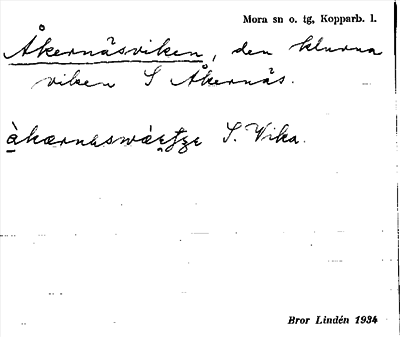 Mora sn o. tg, Kopparb. l.
Åkernäsviken, den
viken S Åkernäs.
S. Vika.
Bror Lindén 1934